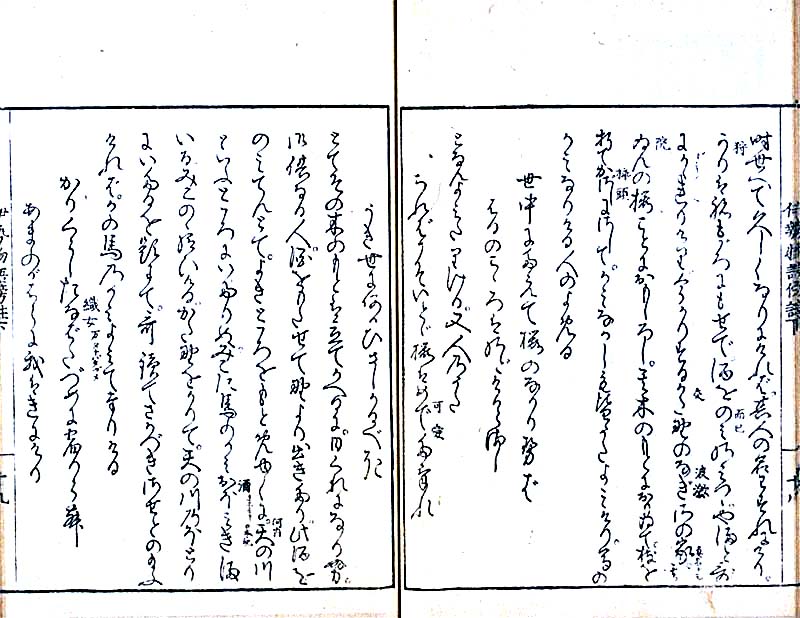 時世へて久しくなりにければ其人の名わすれにけり。
かりはねんごろにもせで酒をのみのみつゝやまと哥
にかゝれりけりいまかりするかた野のなぎさの家
ゐんの桜ことにおもしろし其木のもとにおりゐて枝を
折てかざしにさしてかみなかしも皆哥よみけりうまの
かみなりける人のよめる
世中にたえて桜のなかり勢ば
はるのこゝろはのどけからまし
となんよみたりける又人のうた
ちればこそいとゞ桜はめでたけれ
うき世になにかひさしかるべき
とてその木のもとは立てかへるに日ぐれになりぬ
御供なる人酒をもたせて野より出きたり此酒を
のみてんとてよきところをもとめゆくに天の川
といふところにいたりぬみこに馬のかみおほみきま
いるみこののたまひけるかた野をかりて天の川のほとり
にいたるを題にて哥読てさかづきはさせとのたまふ
ければかの馬のかみよみて奉りける
かりくらしたなばたつめに宿から舞
あまのがはらに我はきにけり